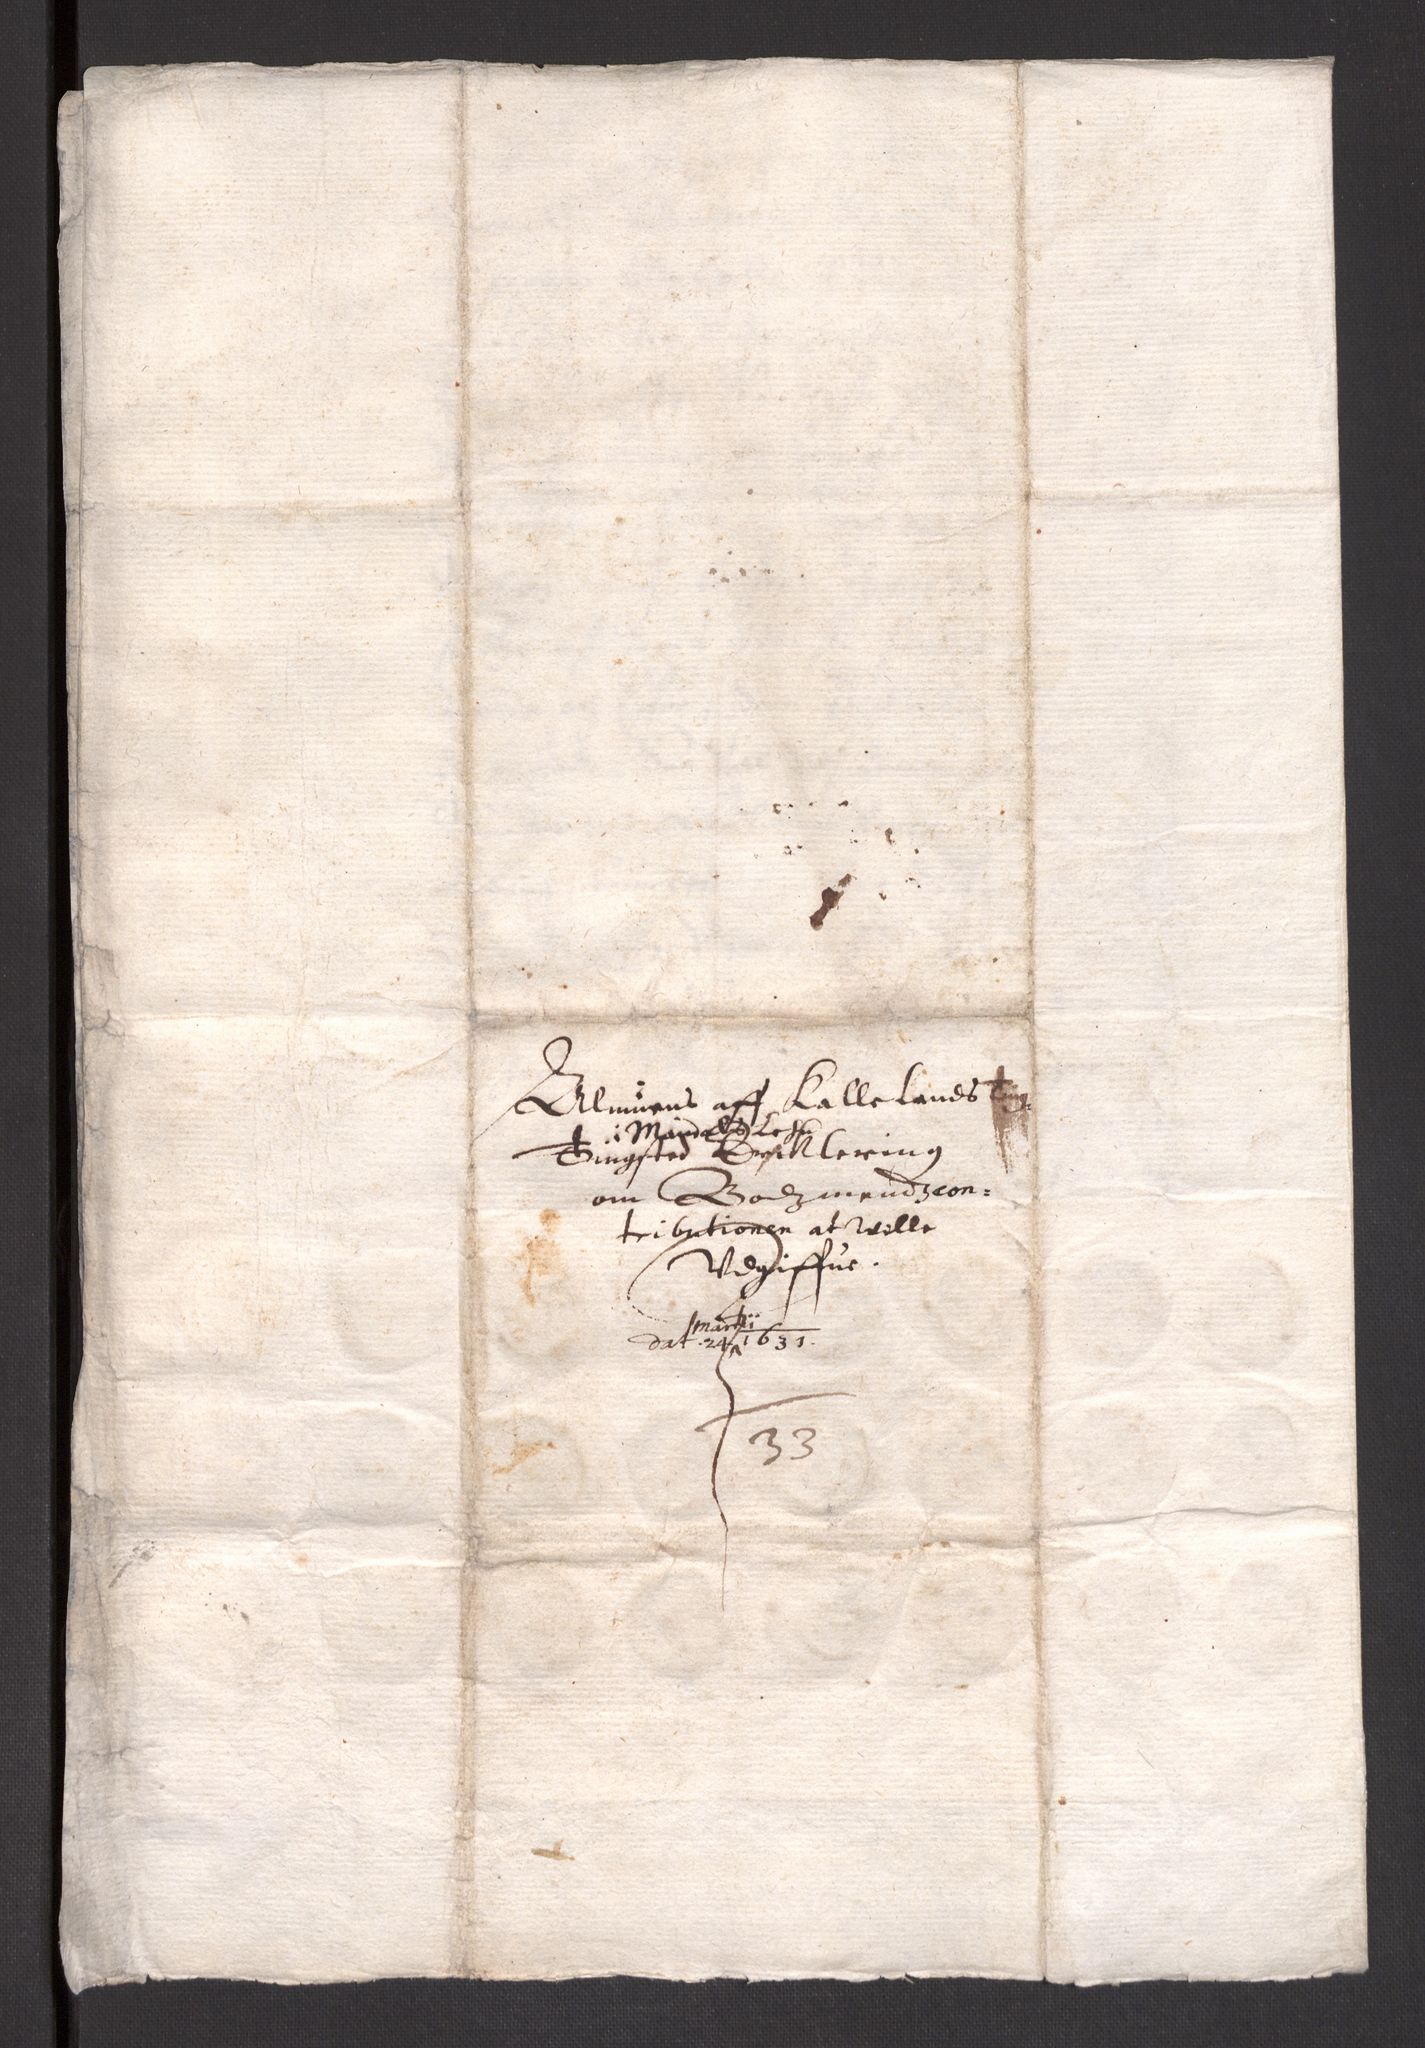 Almuens aff Kallelands Ting-
i Mandals Lehn
Tingsted Erklering
om Bodzmendz con=
tributionen at wille
Vdgiffue.
Martij
dat .24. 1631.
33